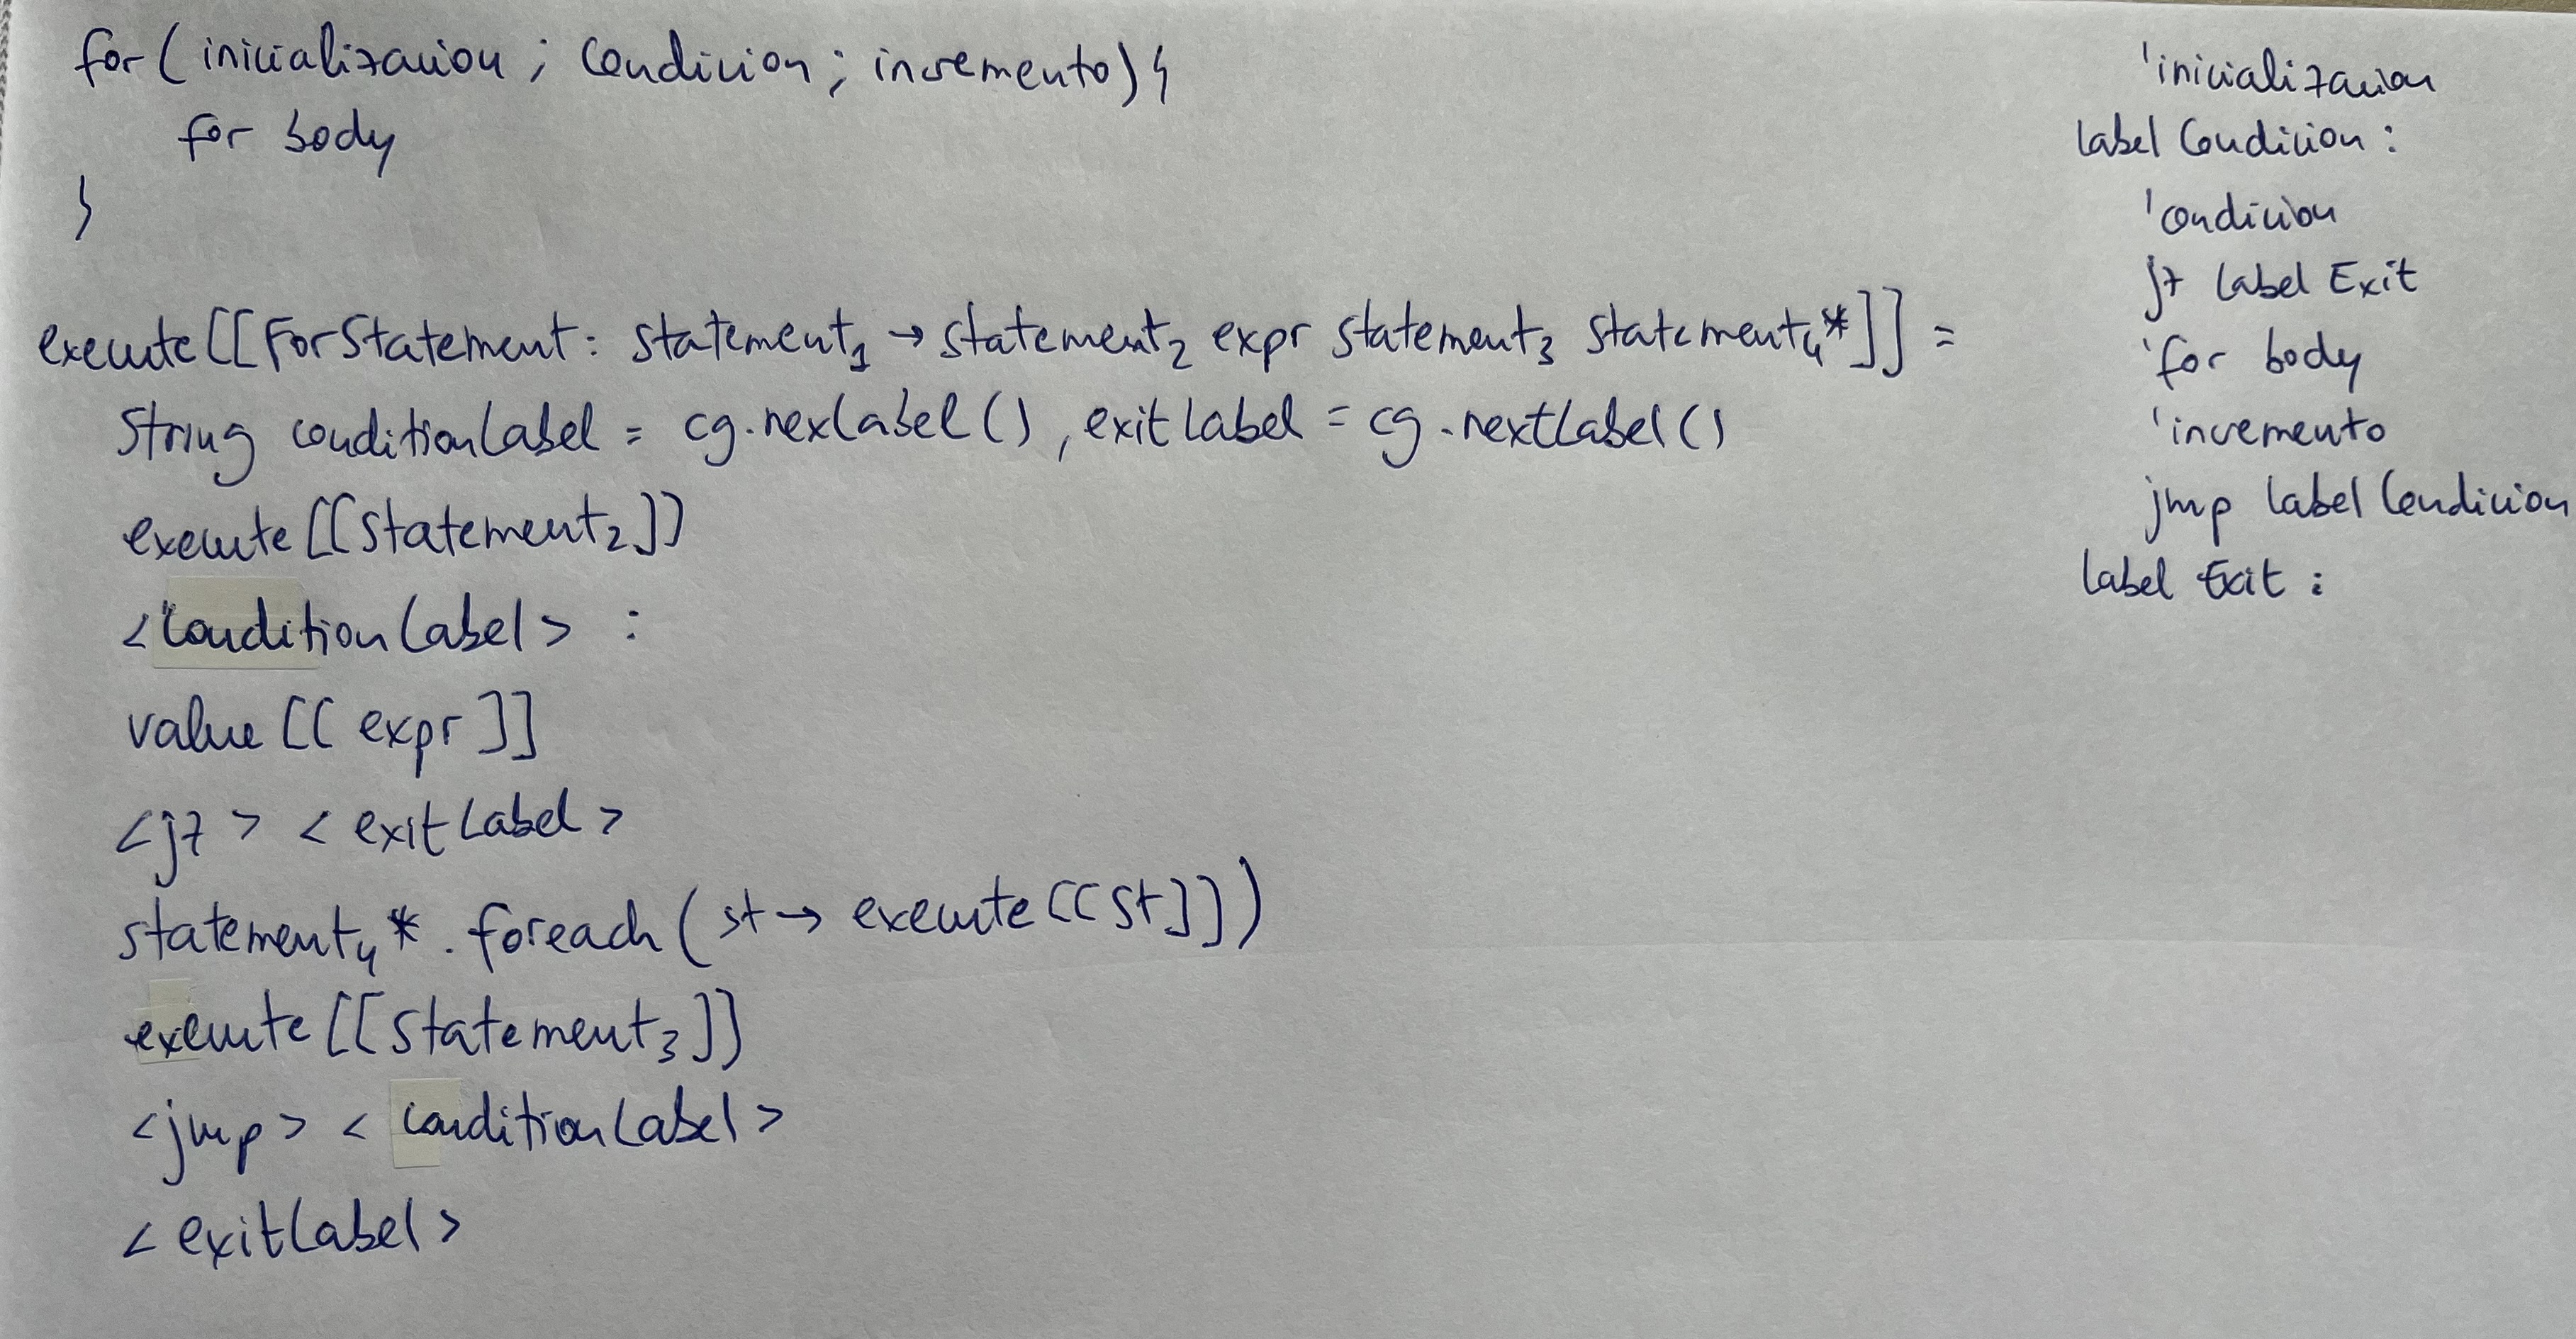 for ( inicializacion ; condicion ; incremento) {
for body
}
execute[[ForStatement: statement1 → statement2 expr statement3 statement4*]] =
String conditionLabel = cg.nexLabel() , exitLabel = cg.nextLabel()
execute[[statement2]]
<conditionLabel> :
value [[ expr ]]
<jz> < exitLabel>
statement4* . foreach ( st → execute[[st]])
execute[[statement3]]
<jmp> < conditionLabel>
< exitLabel>
'inicializacion
label Condicion :
'condicion
jz label Exit
'for body
'incremento
jmp label Condicion
label Exit :